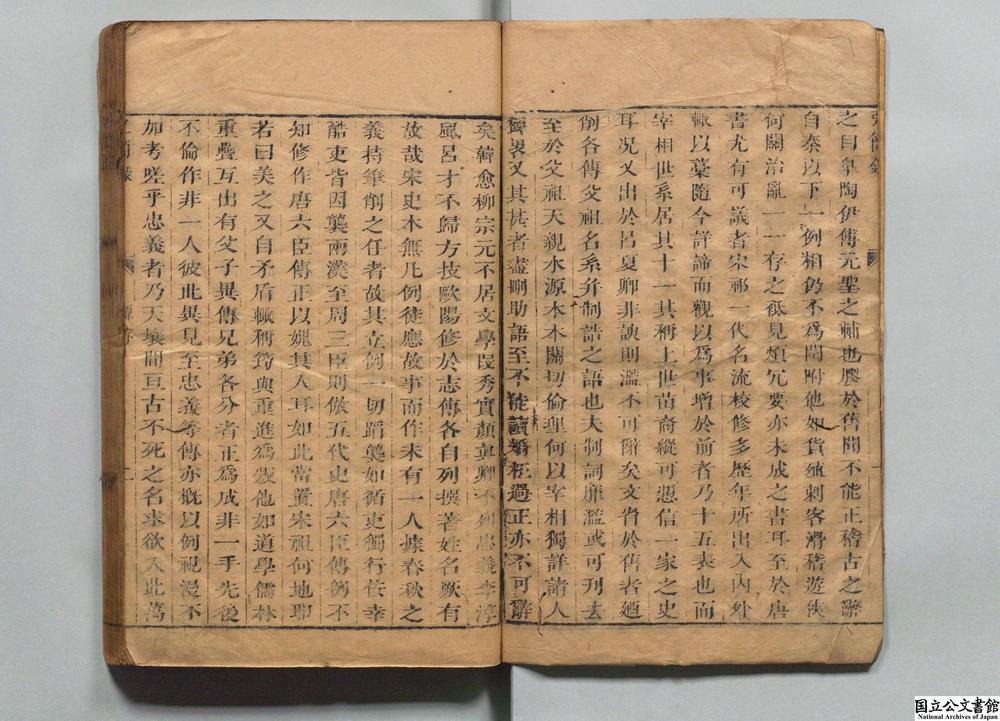 之曰皐陶伊傅元聖之輔也膠於舊聞不能正稽古之辭
自秦以下一例相仍不爲閏附他如貨殖刺客滑稽遊俠
何關治亂一一存之祗見煩冗要亦未成之書耳至於唐
書尤有可議者宋祁一代名流校修多歷年所出入内外
輙以藁隨今詳諦而觀以爲事增於前者乃十五表也而
宰相世系居其十一其稱上世苗裔縱可憑信一家之史
耳况又出於呂夏卿非諛則濫不可辭矣文省於舊者廼
削各傳父祖名系并制誥之語也夫制詞靡濫或可刊去
至於父祖天親水源木本關切倫理何以宰相獨詳諸人
俾畧又其甚者盡刪助語至不能讀矯枉過正亦不可辭
矣韓愈柳宗元不居文學段秀實顏眞卿不列忠義李淳
風呂才不歸方技歐陽修於志傳各自列撰著姓名厥有
故哉宋史本無凡例徒應故事而作未有一人據春秋之
義持筆削之任者故其立例一切蹈襲如循吏獨行佞幸
酷吏皆因襲兩漢至周三臣則倣五代史唐六臣傳例不
知修作唐六臣傳正以媿其人耳如此當置宋祖何地耶
若曰美之又自矛盾輙稱筠與重進爲叛他如道學儒林
重疊互出有父子異傳兄弟各分者正爲成非一手先後
不倫作非一人彼此異見至忠義等傳亦概以例視漫不
加考嗟乎忠義者乃天壤間亘古不死之名求欲入此萬
国立公文書館
National Archives of Japan